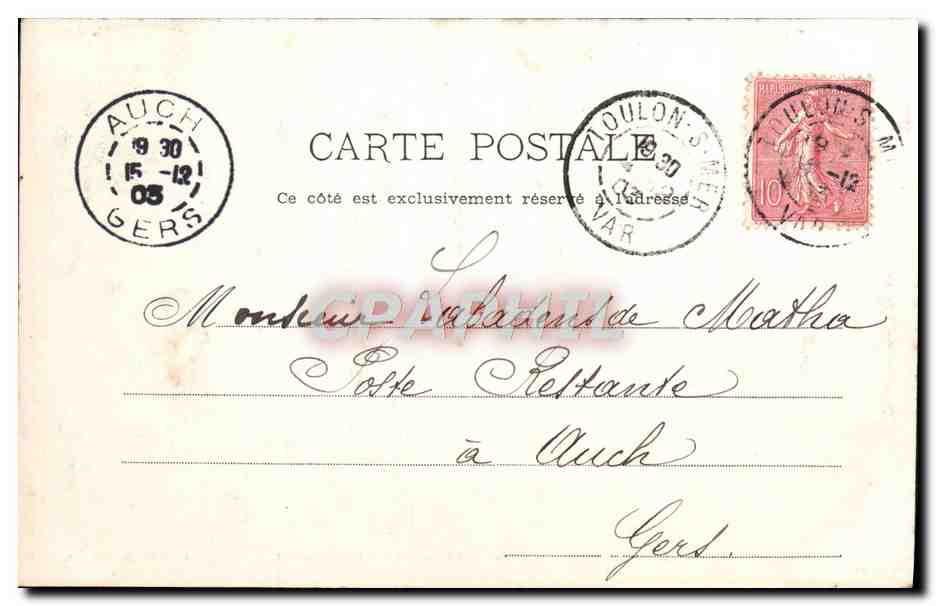 AUCH
19 30
15 -12
03
GERS
CARTE POSTALE
Ce côté est exclusivement réservé à l'adresse
TOULON-S-MER
19 30
VAR
REPUBLIQUE FRANÇAISE
10
TOULON-S-MER
-12
VAR
CPAPHIL
Monsieur de Matha
Poste Restante
à Auch
Gers.